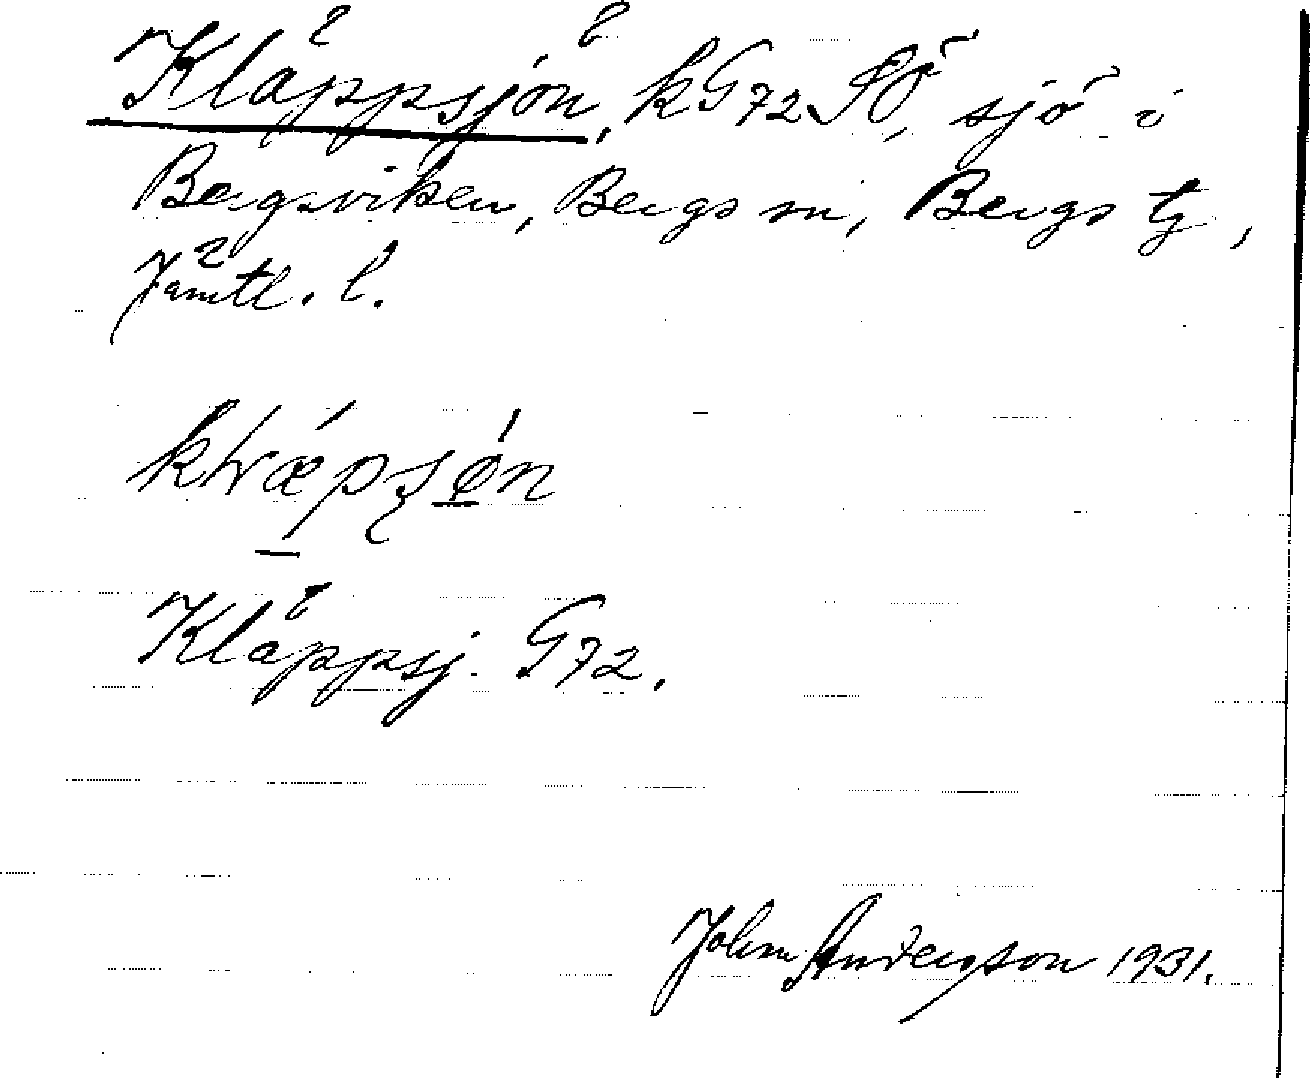 Kläppsjön, kG72SÖ, sjö i
Bergsviken, Bergs sn, Bergs tg,
Jämtl. l.
Kläppsj. G72.
John Anderson 1931.